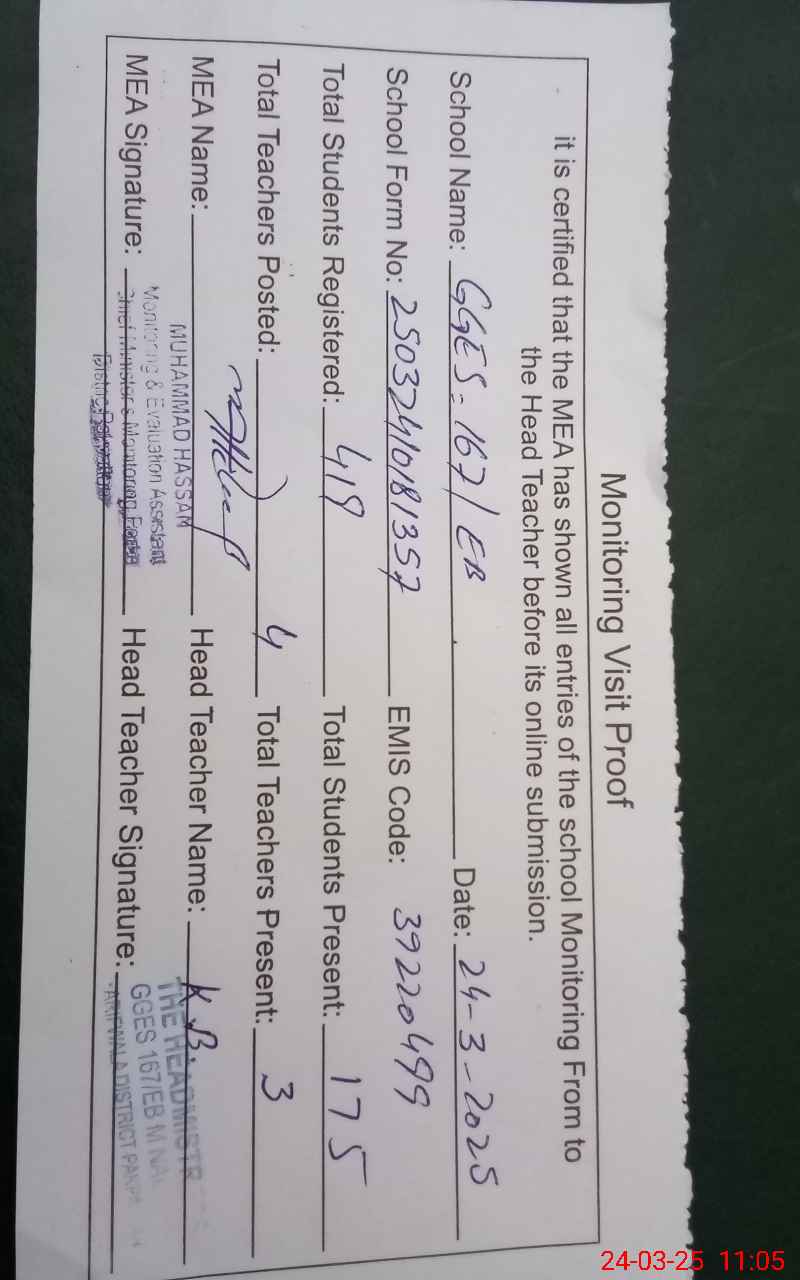 Monitoring Visit Proof
it is certified that the MEA has shown all entries of the school Monitoring From to
the Head Teacher before its online submission.
School Name: GGES = 167/EB Date: 24-3-2025
School Form No: 25032410181357 EMIS Code: 39220499
Total Students Registered: 419 Total Students Present: 175
Total Teachers Posted: 4 Total Teachers Present: 3
MEA Name: Head Teacher Name: K.B.
MUHAMMAD HASSAM
Monitoring & Evaluation Assistant
Chief Minister's Monitoring Force
THE HEADMISTR
GGES 167/EB M
ARIFWALA DISTRICT
MEA Signature: Head Teacher Signature:
24-03-25 11:05